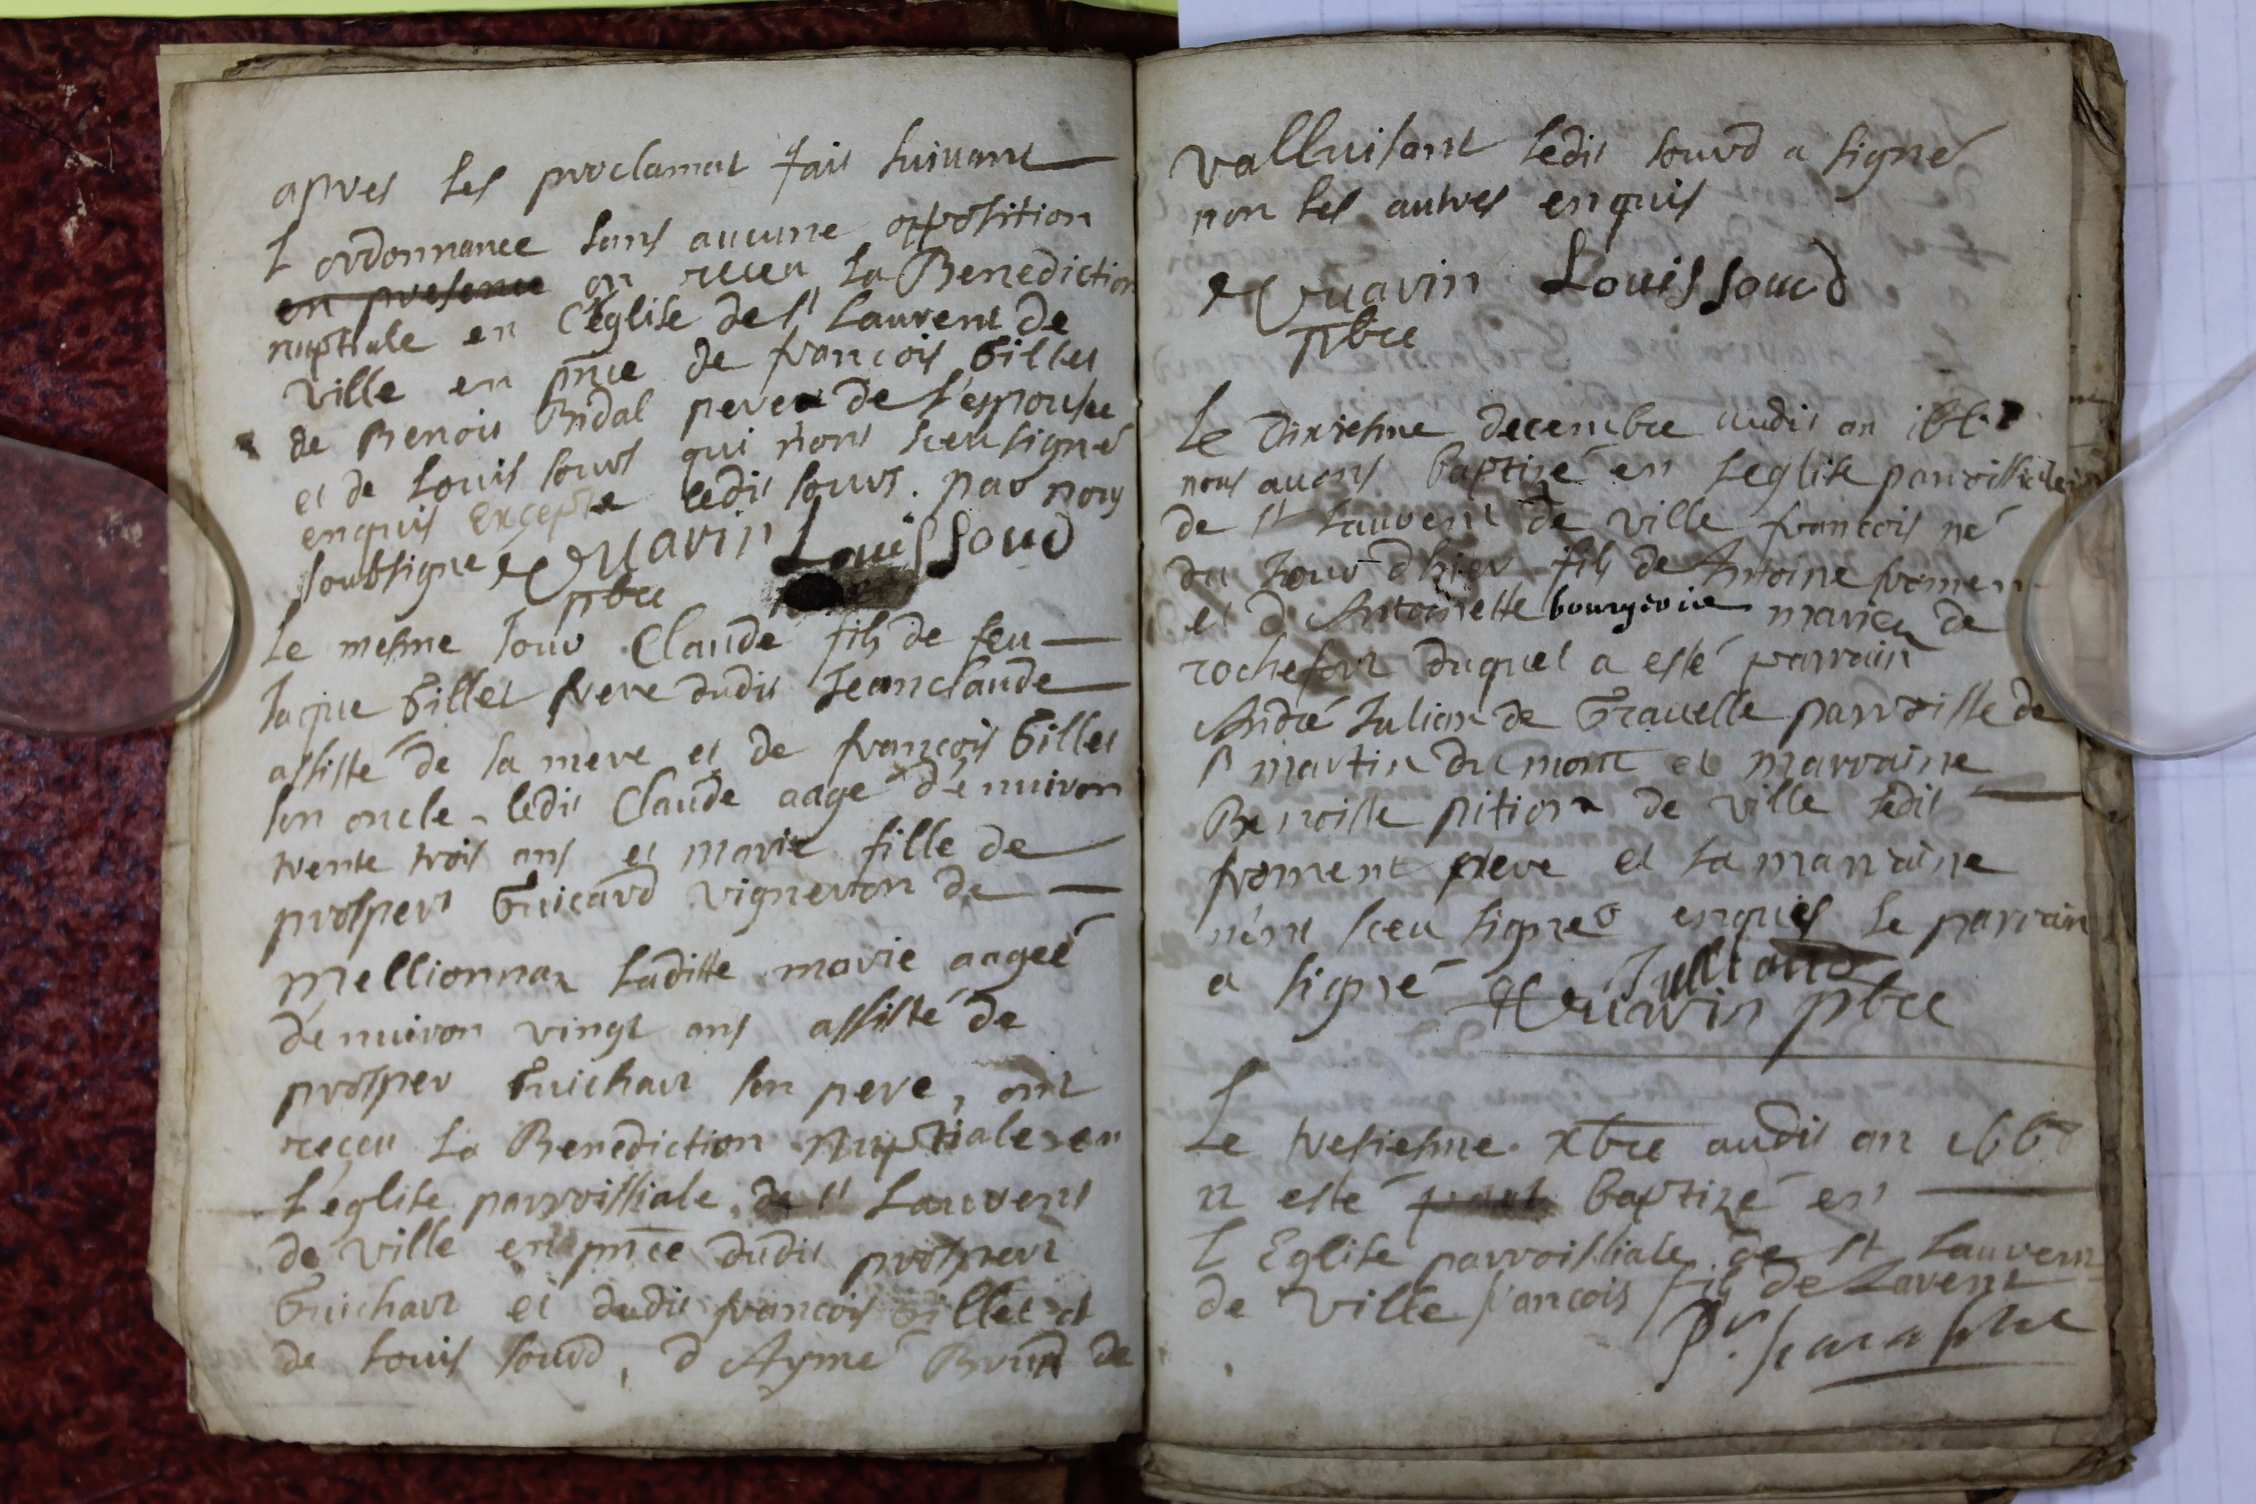 apres les proclamat fait suivant
l ordonnance sans aucune opposition
en presence on receu la Benediction
nuptiale en l'eglise de st Laurent de
ville en pnce de francois Gillet
de Benoit Bridal pere de l'espousee
et de Louis sourd qui n'ont sceu signé
enquis excepte ledit sourd. par nous
soubsigné Louis sourd
pbre
Le mesme jour Claude fils de feu
Jaque Gillet frere dudit Jeanclaude
assisté de sa mere et de françois Gillet
son oncle, ledit Claude aagé d'enuiron
trente trois ans et marie fille de
prosper Guicard vigneron de
Mellionnaz laditte marie aageé
d'enuiron vingt ans assisté de
prosper Guichart son pere, ont
reçeu la Benediction Nuptiale en
l'eglise parroissiale de st Laurent
de ville en pnce dudit prosper
Guichart et dudit francois Gillet et
de Louis sourd, d Aymé Brun de
valluisant ledit sourd a signé
non les autres enquis
Louis sourd
pbre
Le Dixiesme decembre audit an 166
nous auons baptizé en leglise parroissiale
de st Laurent de ville francois né
du jour d'hier fils de Antoine fromen
et d Antoinette bourgeoise mariez de
rochefort duquel a esté parrain
André Julian de Grauelle parroisse de
st martin du mont et marraine
Benoiste pition de ville ledit
froment pere et la marraine
n'ont sceu signer enquis le parrain
a signé Julliand
pbre
Le tresiesme xbre audit an 166
a esté baptizé en
l Eglise parroissiale de st Laurent
de ville francois fils de Laurent